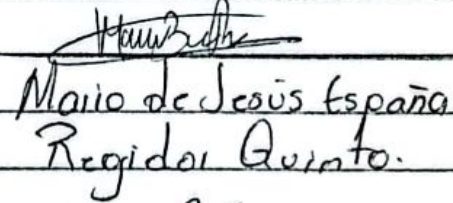 Mario de Jesús España
Regidor Quinto.